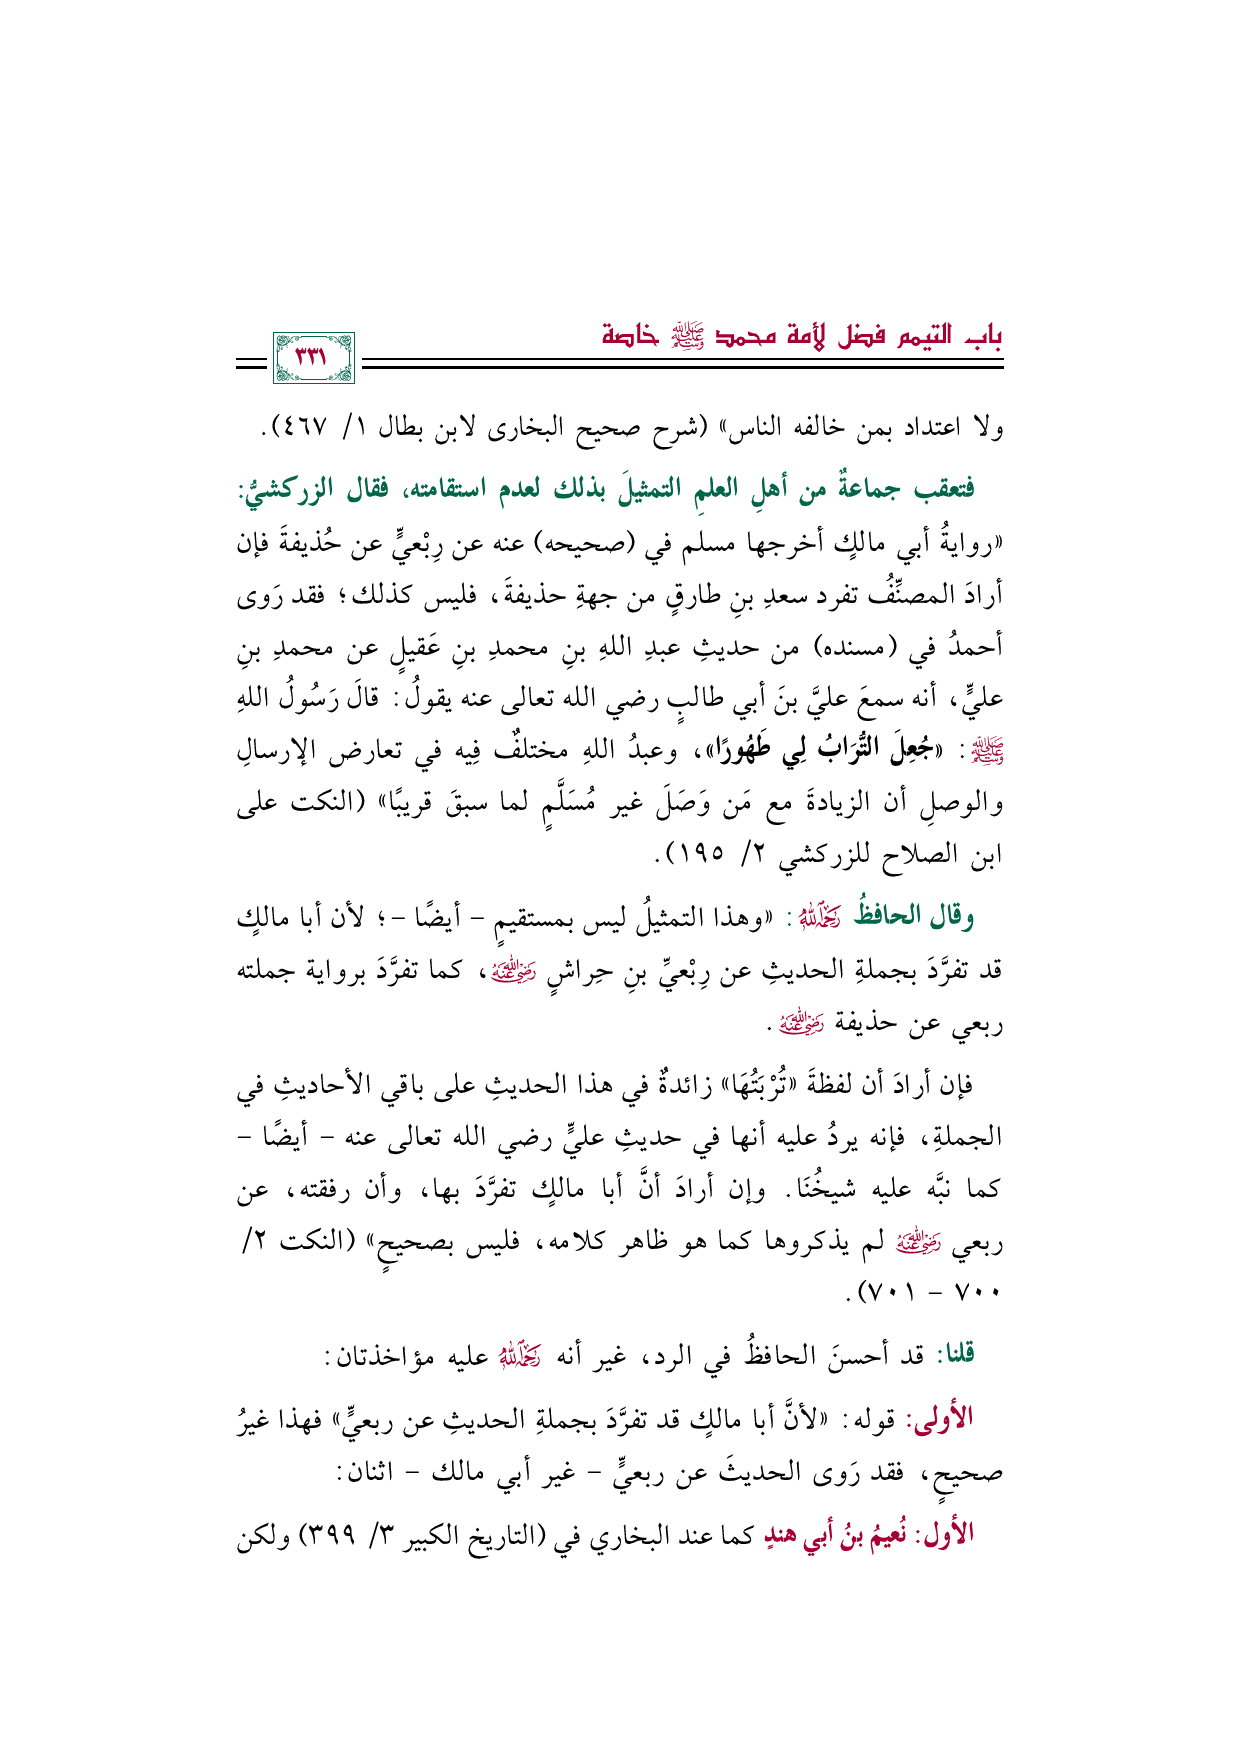 باب التيمم فضل لأمة محمد ﷺ خاصة
٣٣١
ولا اعتداد بمن خالفه الناس» (شرح صحيح البخارى لابن بطال ١/ ٤٦٧).
فتعقب جماعةٌ من أهلِ العلمِ التمثيلَ بذلك لعدم استقامته، فقال الزركشيُّ:
«روايةُ أبي مالكٍ أخرجها مسلم في (صحيحه) عنه عن رِبْعيٍّ عن حُذيفةَ فإن
أرادَ المصنِّفُ تفرد سعدِ بنِ طارقٍ من جهةِ حذيفةَ، فليس كذلك؛ فقد رَوى
أحمدُ في (مسنده) من حديثِ عبدِ اللهِ بنِ محمدِ بنِ عَقيلٍ عن محمدِ بنِ
عليٍّ، أنه سمعَ عليَّ بنَ أبي طالبٍ رضي الله تعالى عنه يقولُ: قالَ رَسُولُ اللهِ
ﷺ: «جُعِلَ التُّرَابُ لِي طَهُورًا»، وعبدُ اللهِ مختلفٌ فِيه في تعارض الإرسالِ
والوصلِ أن الزيادةَ مع مَن وَصَلَ غير مُسَلَّمٍ لما سبقَ قريبًا» (النكت على
ابن الصلاح للزركشي ٢/ ١٩٥).
وقال الحافظُ رحمه الله: «وهذا التمثيلُ ليس بمستقيمٍ - أيضًا -؛ لأن أبا مالكٍ
قد تفرَّدَ بجملةِ الحديثِ عن رِبْعيِّ بنِ حِراشٍ رضي الله عنه، كما تفرَّدَ برواية جملته
ربعي عن حذيفة رضي الله عنه.
فإن أرادَ أن لفظةَ «تُرْبَتُهَا» زائدةٌ في هذا الحديثِ على باقي الأحاديثِ في
الجملةِ، فإنه يردُ عليه أنها في حديثِ عليٍّ رضي الله تعالى عنه - أيضًا -
كما نبَّه عليه شيخُنَا. وإن أرادَ أنَّ أبا مالكٍ تفرَّدَ بها، وأن رفقته، عن
ربعي رضي الله عنه لم يذكروها كما هو ظاهر كلامه، فليس بصحيحٍ» (النكت ٢/
٧٠٠ - ٧٠١).
قلنا: قد أحسنَ الحافظُ في الرد، غير أنه رحمه الله عليه مؤاخذتان:
الأولى: قوله: «لأنَّ أبا مالكٍ قد تفرَّدَ بجملةِ الحديثِ عن ربعيٍّ» فهذا غيرُ
صحيحٍ، فقد رَوى الحديثَ عن ربعيٍّ - غير أبي مالك - اثنان:
الأول: نُعيمُ بنُ أبي هندٍ كما عند البخاري في (التاريخ الكبير ٣/ ٣٩٩) ولكن